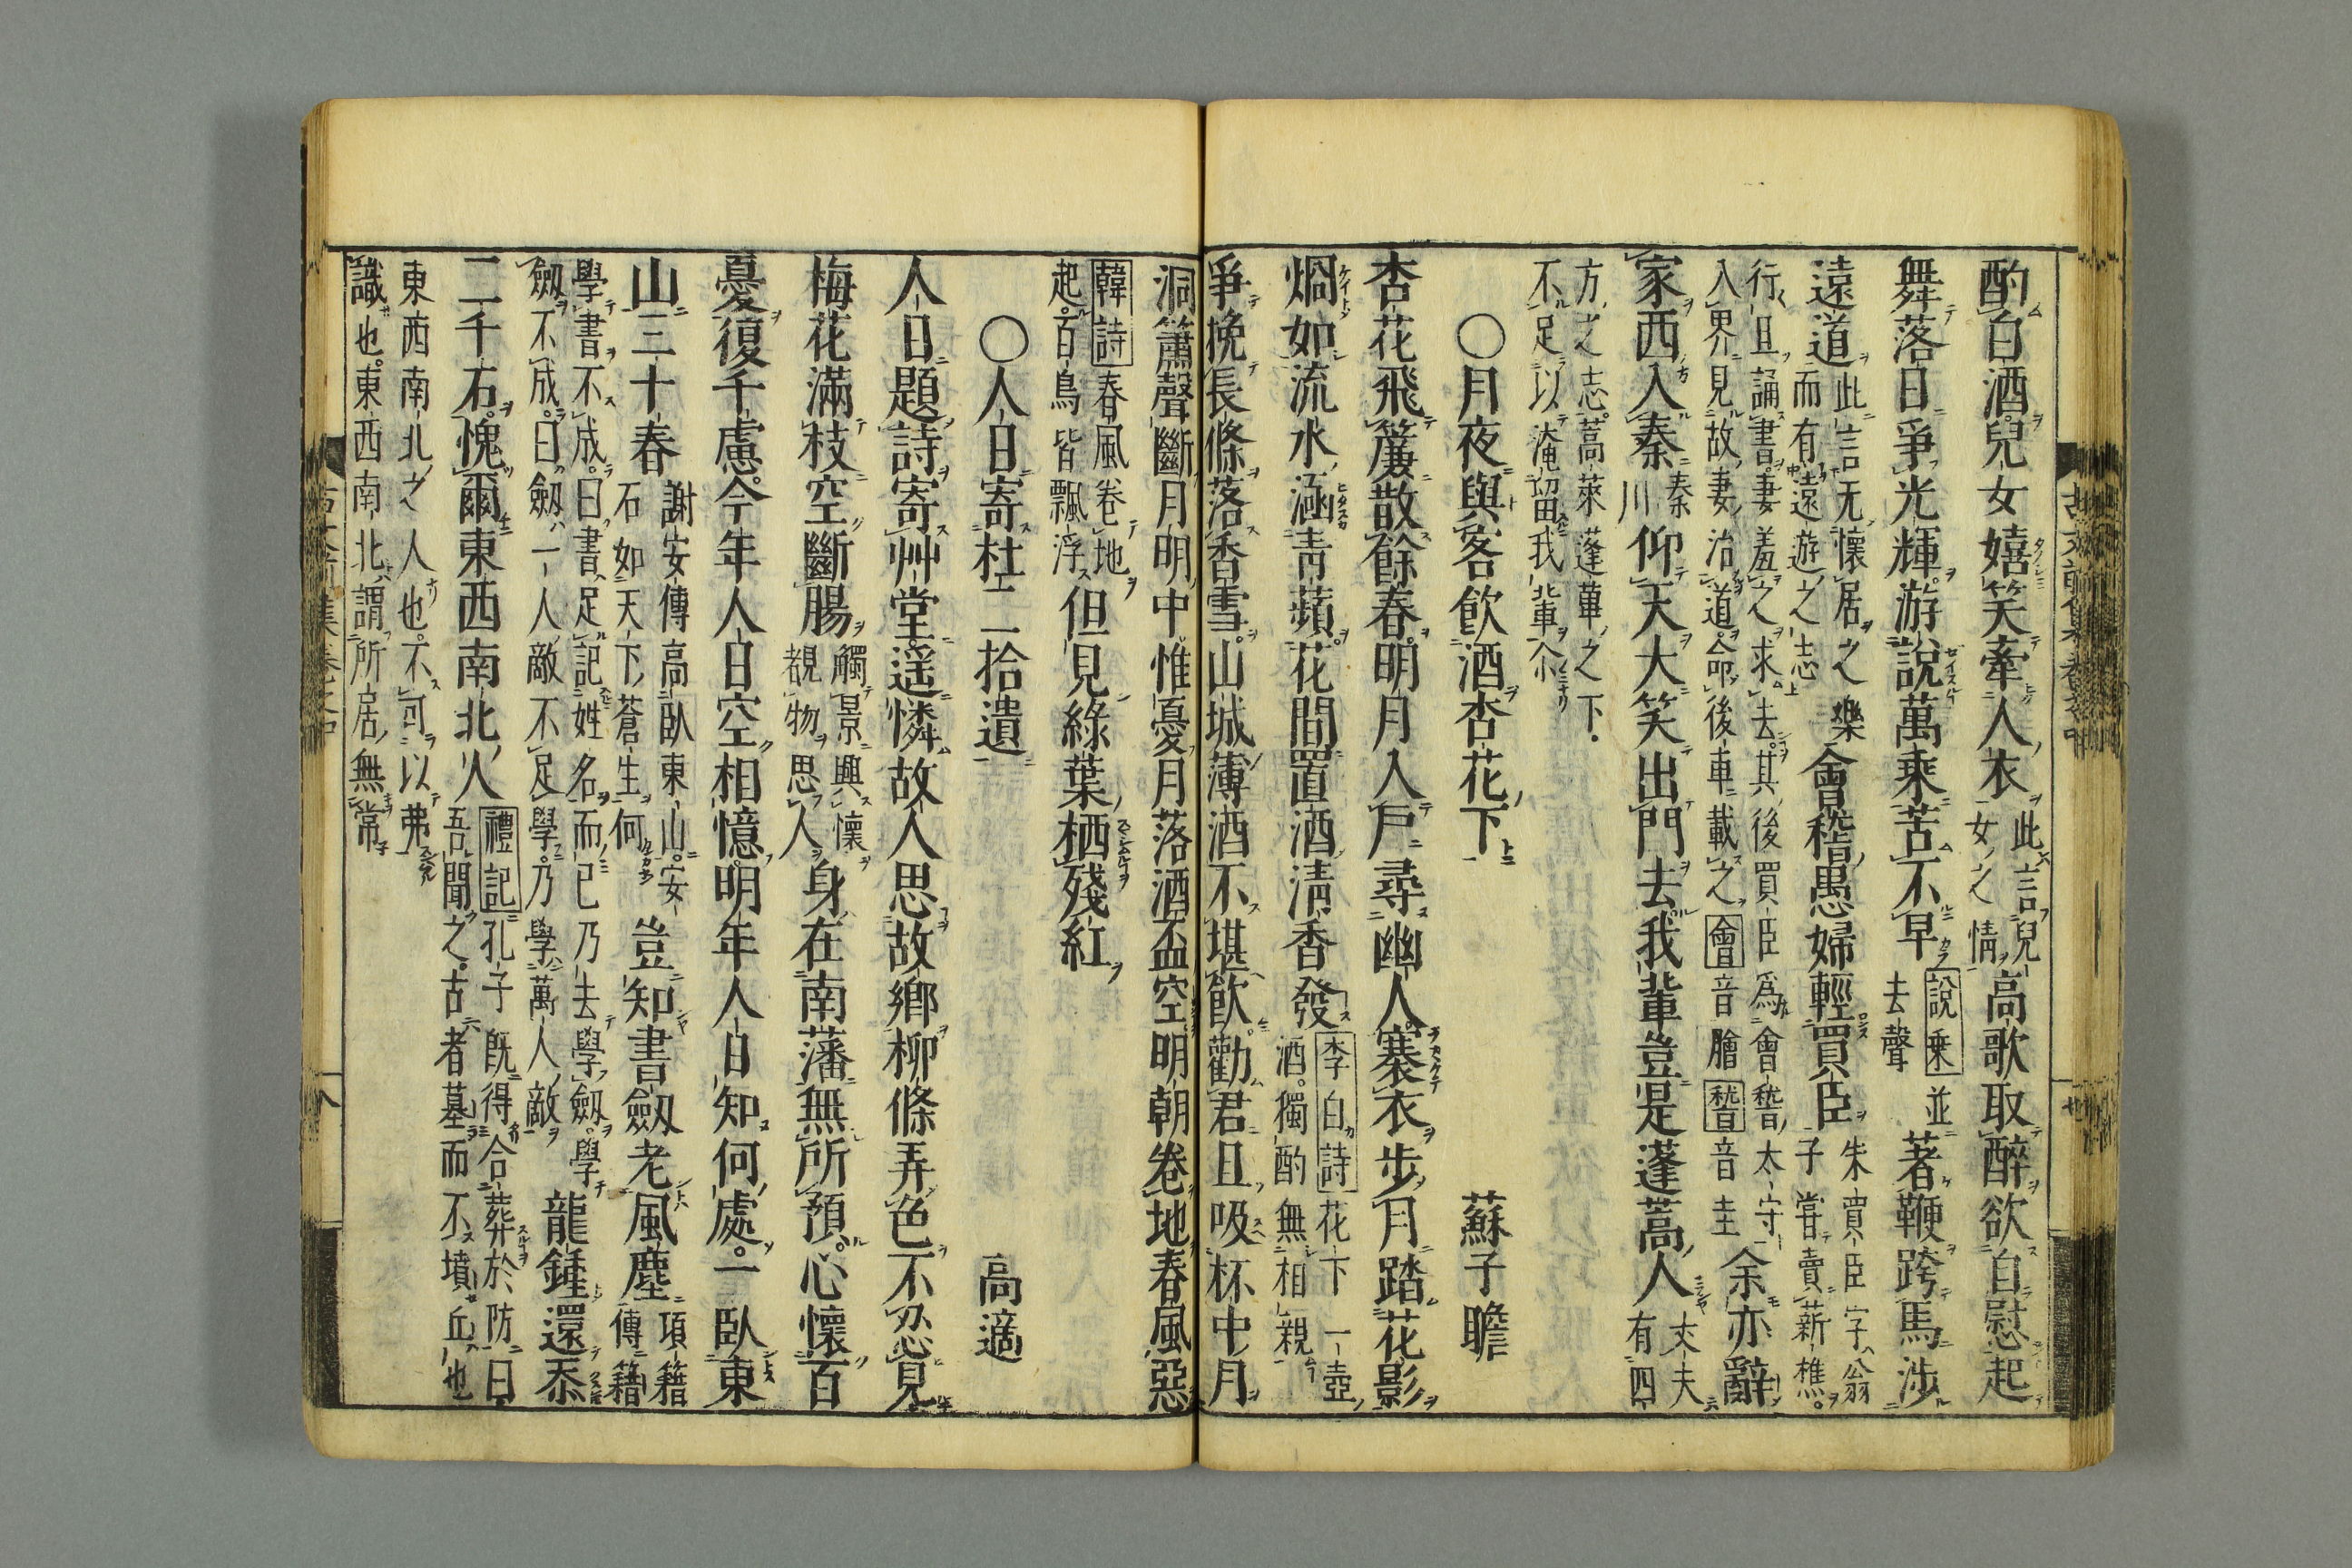 酌白酒兒女嬉笑牽人衣此言兒女之情高歌取醉欲自慰起
舞落日爭光輝游說萬乘苦不早說乘並去聲著鞭跨馬涉
遠道此言无懷居之樂而有遠遊之志會稽愚婦輕買臣朱買臣字翁子嘗賣薪樵
行且誦書妻羞之求去其後買臣爲會稽太守入界見故妻治道命後車載之會音膾稽音圭余亦辭
家西入秦秦川仰天大笑出門去我輩豈是蓬蒿人丈夫有四
方之志蒿萊蓬蓽之下不足以淹留我輩尒
○月夜與客飲酒杏花下 蘇子瞻
杏花飛簾散餘春明月入戶尋幽人褰衣步月踏花影
烱如流水涵靑蘋花間置酒淸香發李白詩花下一壺酒獨酌無相親
爭挽長條落香雪山城薄酒不堪飲勸君且吸杯中月
洞簫聲斷月明中惟憂月落酒盃空明朝卷地春風惡
韓詩春風卷地起百鳥皆飄浮但見綠葉栖殘紅
○人日寄杜二拾遺 高適
人日題詩寄艸堂遙憐故人思故鄉柳條弄色不忍見
梅花滿枝空斷腸觸景興懷覩物思人身在南藩無所預心懷百
憂復千慮今年人日空相憶明年人日知何處一臥東
山三十春謝安傳高臥東山安石如天下蒼生何豈知書劔老風塵項籍傳籍
學書不成曰書足記姓名而已乃去學劔學劔不成曰劔一人敵不足學乃學萬人敵龍鍾還忝
二千石愧爾東西南北人禮記孔子旣得合葬於防曰吾聞之古者墓而不墳丘也
東西南北之人也不可以弗識也東西南北謂所居無常